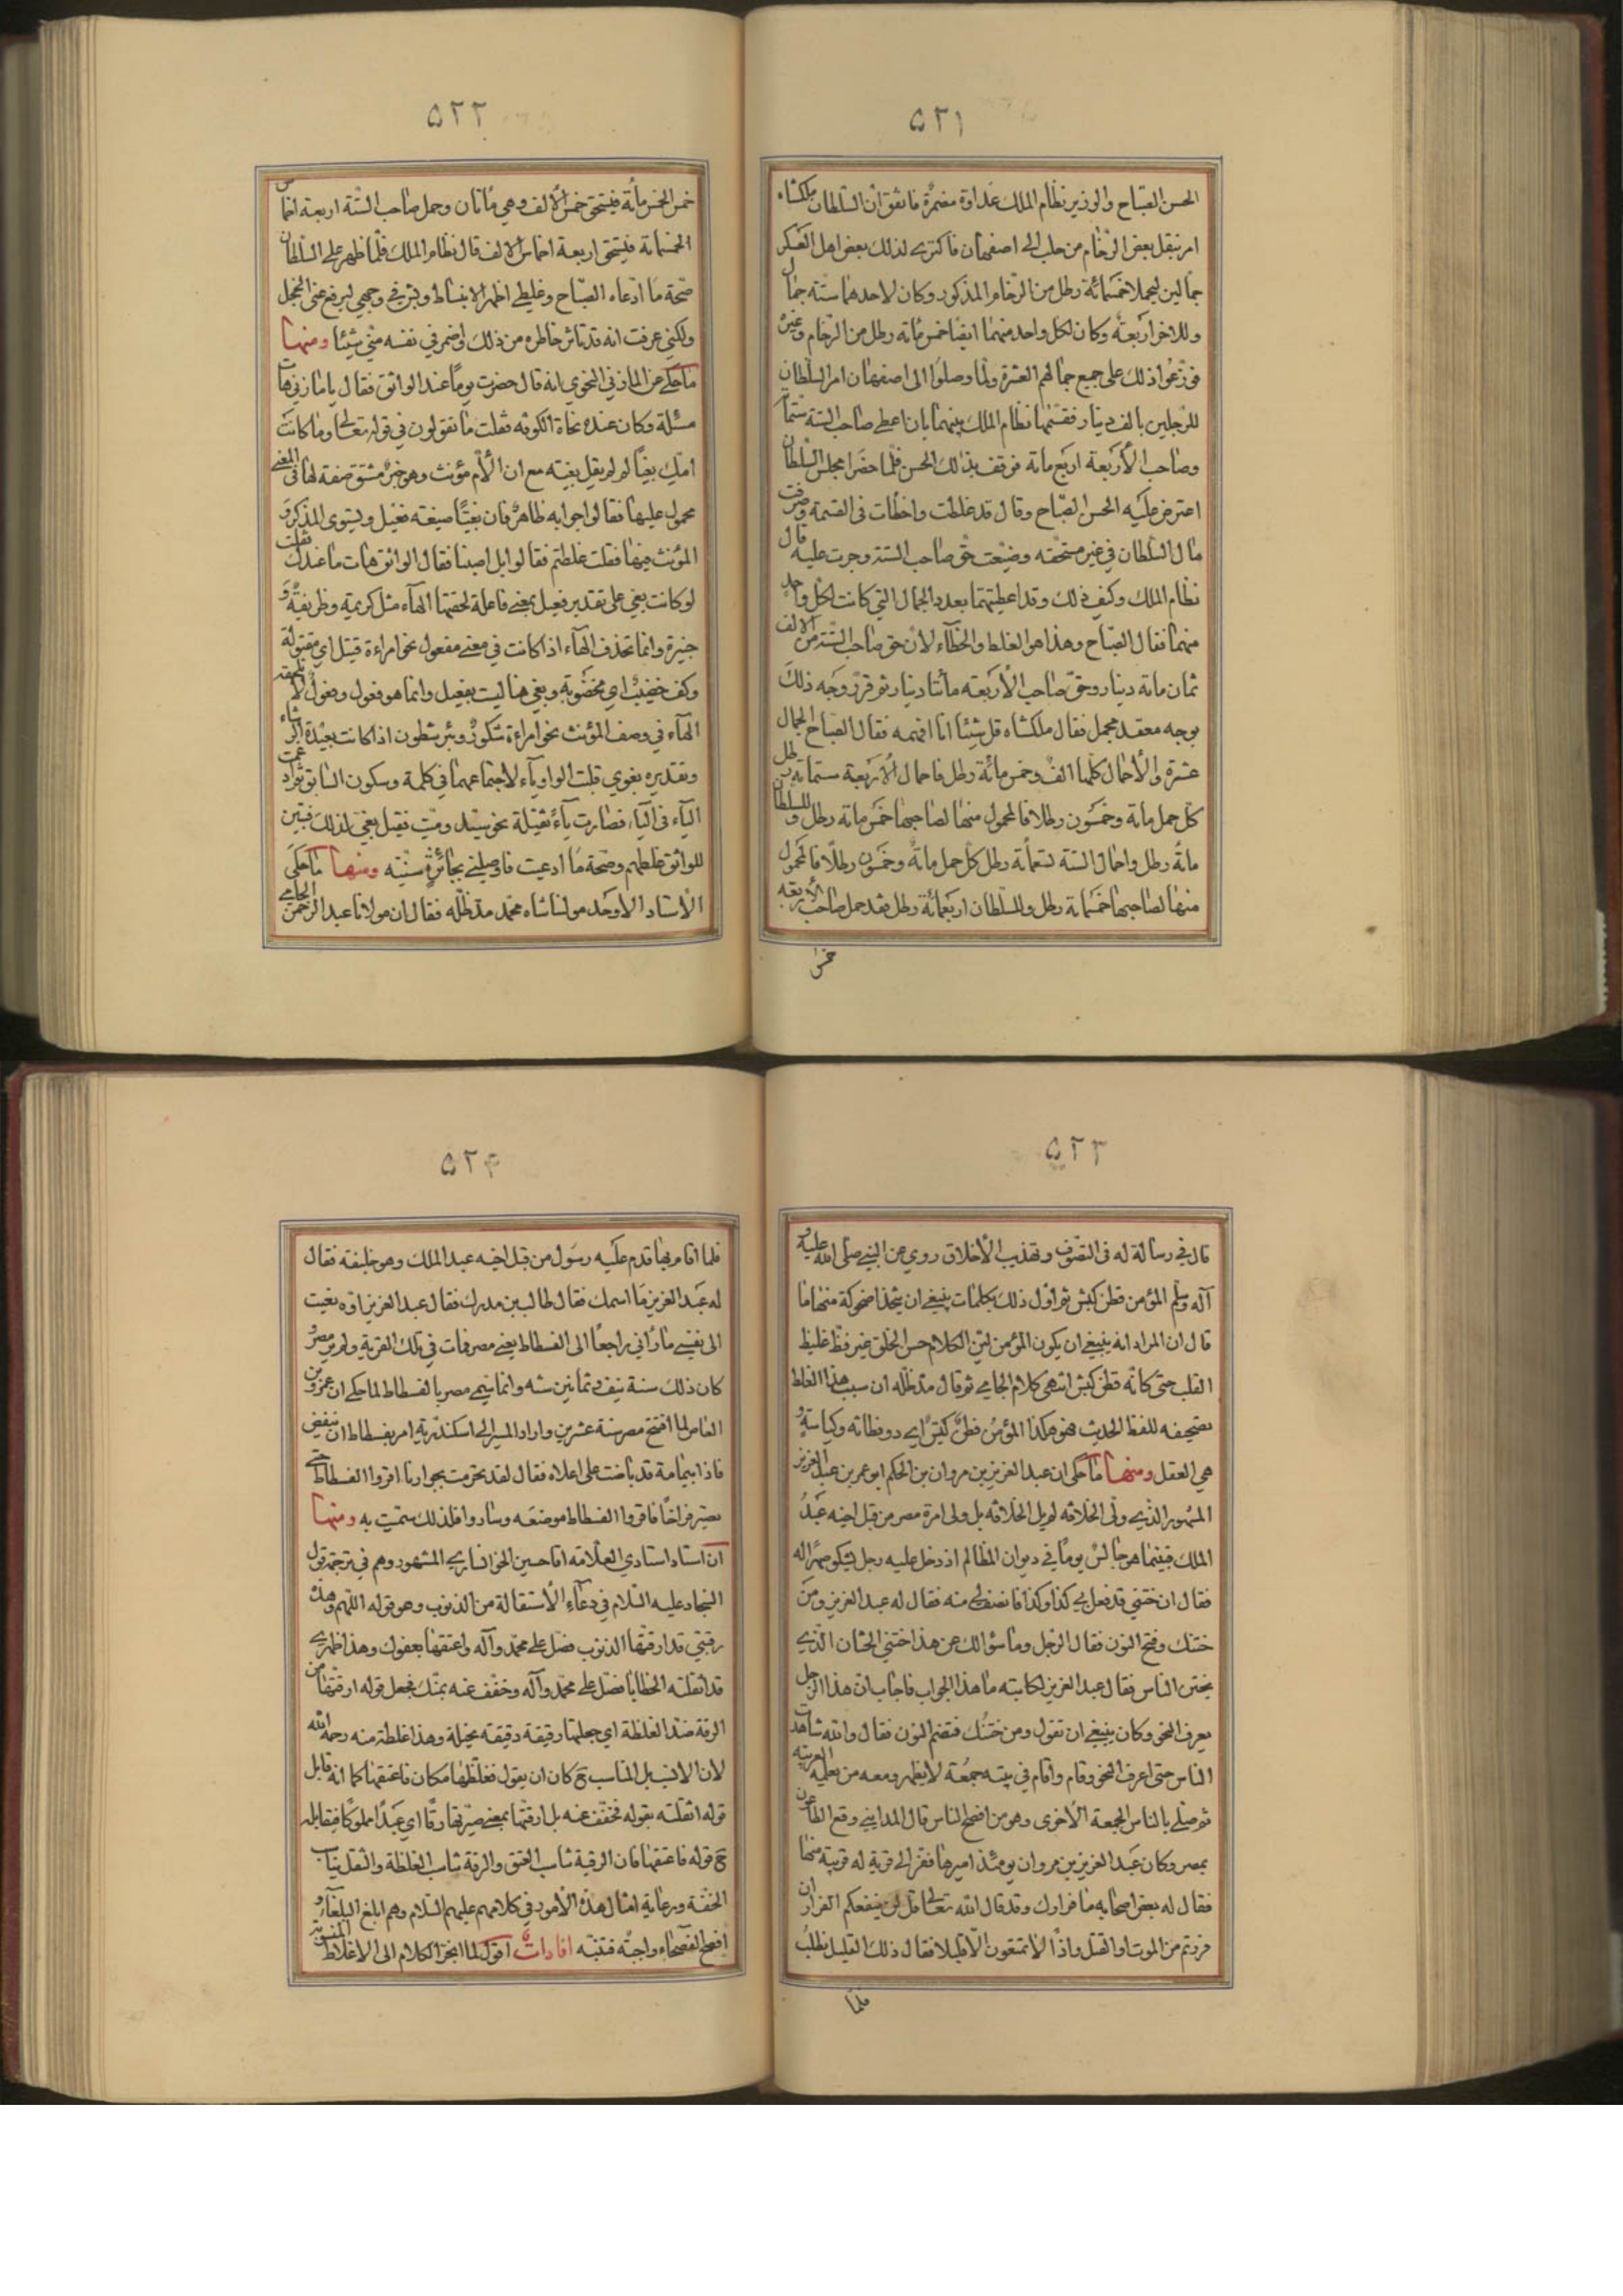 ٥٢١
الحسن الصباح والوزير نظام الملك عداوة مضمرة فاتفق ان السلطان ملكشاه
امر بنقل بعض الرخام من حلب الى اصفهان فاكترى لذلك بعض اهل العسكر
جمالين ليحملا خمسمائة رطل من الرخام المذكور وكان لاحدهما ستة جمال
وللاخر اربعة وكان لكل واحد منهما ايضا خمس مائة رطل من الرخام وغيره
فوزعوا ذلك على جميع جمالهم العشرة ولما وصلوا الى اصفهان امر السلطان
للرجلين بالف دينار فقسمها نظام الملك بينهما بان اعطى صاحب الستة ستمائة
وصاحب الأربعة اربع مائة فوقف بذلك الحسن فلما حضرا مجلس السلطان
اعترض عليه الحسن الصباح وقال قد غلطت واخطأت في القسمة وصرفت
مال السلطان في غير مستحقه وضيعت حق صاحب الستة وجرت عليه قال
نظام الملك وكيف ذلك وقد اعطيتهما بعدد الجمال التي كانت لكل واحد
منهما فقال الصباح وهذا هو الغلط والخطاء لان حق صاحب الستة من الالف
ثمان مائة دينار وحق صاحب الأربعة مأتا دينار ثم قرر وجه ذلك
بوجه معقد مجمل فقال ملكشاه قل شيئا انا افهمه فقال الصباح الجمال
عشرة والأحمال كلها الف وخمس مائة رطل فاحمال الأربعة ستمائة رطل
كل حمل مائة وخمسون رطلا فالمحمول منها لصاحبها خمس مائة رطل وللسلطان
مائة رطل واحمال الستة تسعمائة رطل كل حمل مائة وخمسون رطلا فالمحمول
منها لصاحبها خمسمائة رطل وللسلطان اربعمائة رطل فقد حمل صاحب الأربعة
خمس
٥٢٢
خمس الخمس مائة فيستحق خمس الالف وهي مائتان وحمل صاحب الستة اربعة اخماس
الخمسمائة فيستحق اربعة اخماس الالف قال نظام الملك فلما ظهر على السلطان
صحة ما ادعاه الصباح وغلطي اظهر الانبساط وبش في وجهي ليرفع عني الخجل
ولكني عرفت انه قد تأثر خاطره من ذلك واضمر في نفسه مني شيئا ومنها
ما حكي عن المازني النحوي انه قال حضرت يوما عند الواثق فقال يا مازني هات
مسئلة وكان عنده نحاة الكوفة فقلت ما تقولون في قوله تعالى وما كانت
امك بغيا لم لم يقل بغية مع ان الأم مؤنث وهو خبر مشتق صفة لها في المعنى
محمول عليها فقالوا جوابه ظاهر فان بغيا صيغته فعيل ويستوى المذكر و
المؤنث فيها فقلت غلطتم فقالوا بل اصبنا فقال الواثق هات ما عندك فقلت
لو كانت بغي على تقدير فعيل بمعنى فاعلة لحقتها الهاء مثل كريمة وظريفة و
وانما تحذف الهاء اذا كانت في معنى مفعول نحو امراءة قتيل اي مقتولة
وكف خضيب اي مخضوبة وبغي هنا ليست بفعيل وانما هو فعول وفعول لا تلحقه
الهاء في وصف المؤنث نحو امراءة شكور وبئر شطون اذا كانت بعيدة الرشاء
وتقديره بغوي قلبت الواو ياء لاجتماعهما في كلمة وسكون السابق ثم ادغمت
الياء في الياء فصارت ياء ثقيلة نحو سيد وميت فقيل بغي لذلك فتبين
للواثق غلطهم وصحة ما ادعيت فاوصلني بجائزة سنية ومنها ما حكى
الأستاد الاوحد مولنا شاه محمد مد ظله فقال ان مولانا عبد الرحمن الجامي
٥٢٣
قال في رسالة له في التصوف وتهذيب الأخلاق روي عن النبي صلى الله عليه و
آله وسلم المؤمن قطن كبش ثم أول ذلك بكلمات ينبغي ان يتخذ اضحوكة منها ما
قال ان المراد انه ينبغي ان يكون المؤمن لين الكلام حسن الخلق غير فظ غليظ
القلب حتى كأنه قطن كبش انتهى كلام الجامي ثم قال مد ظله ان سبب هذا الغلط
تصحيفه للفظ الحديث فهو هكذا المؤمن فطن كيس اي ذو فطانة وكياسة و
هي العقل ومنها ما حكى ان عبد العزيز بن مروان بن الحكم ابو عمر بن عبد العزيز
المشهور الذي ولي الخلافة لم يل الخلافة بل ولى امرة مصر من قبل اخيه عبد
الملك فبينما هو جالس يوما في ديوان المظالم اذ دخل عليه رجل يشكو صهرا له
فقال ان ختني قد فعل بي كذا وكذا فانصفني منه فقال له عبد العزيز ومن
ختنك وفتح النون فقال الرجل وما سؤالك عن هذا ختني الختان الذي
يختن الناس فقال عبد العزيز لكاتبه ما هذا الجواب فاجاب ان هذا الرجل
يعرف النحو وكان ينبغي ان تقول ومن ختنك فتضم النون فقال والله شاهدت
الناس حتى اعرف النحو وقام واقام في بيته جمعة لا يظهر ومعه من يعلمه العربية
ثم صلى بالناس الجمعة الأخرى وهو من افصح الناس قال المدايني وقع الطاعون
بمصر وكان عبد العزيز بن مروان يومئذ اميرها ففر الى قرية له قريبة منها
فقال له بعض اصحابه ما فرارك وقد قال الله تعالى قل لن ينفعكم الفرار ان
فررتم من الموت او القتل واذا لا تمتعون الا قليلا فقال ذلك القليل نطلب
فلما
٥٢٤
فلما اقام بها قدم عليه رسول من قبل اخيه عبد الملك وهو خليفة فقال
له عبد العزيز ما اسمك فقال طالب بن مدرك فقال عبد العزيز اوه نعيت
الى نفسي ما أراني راجعا الى الفسطاط يعني مصر فمات في تلك القرية ولم ير مصر و
كان ذلك سنة نيف وثمانين سنه وانما سمي مصر بالفسطاط لما حكي ان عمرو بن
العاص لما افتتح مصر سنة عشرين واراد المسير الى اسكندرية امر بفسطاط ان ينقض
فاذا بيمامة قد باضت على اعلاه فقال لقد تحرمت بجوارنا اقروا الفسطاط حتى
يصير فراخا فاقروا الفسطاط موضعه وساروا فلذلك سميت به ومنها
ان استاد استادي العلامه اقا حسين الخوانساري المشهود وهم في ترجمة قول
السجاد عليه السلام في دعاء الأستقالة من الذنوب وهو قوله اللهم وهذه
رقبتي قد ارقتها الذنوب فصل على محمد وآله واعتقها بعفوك وهذا ظهري
قد اثقلته الخطايا فصل على محمد وآله وخفف عنه بمنك فجعل قوله ارقتها من
الرقة ضد الغلظة اي جعلتها رقيقة دقيقة نحيلة وهذا غلطة منه رحمه الله
لان الانسب بل المناسب ح كان ان يقول فغلظها مكان فاعتقها كما انه قابل
قوله اثقلته بقوله فخفف عنه بل ارقتها بمعنى صيرتها رقا اي عبدا مملوكا فيقابله
ح قوله فاعتقها فان الرقية تناسب العتق والرقة تناسب الغلظة والثقل يناسب
الخفة ورعاية امثال هذه الأمور في كلامهم عليهم السلام وهم ابلغ البلغاء و
افصح الفصحاء واجبة فتنبه افادات اقول لما انجر الكلام الى الاغلاط